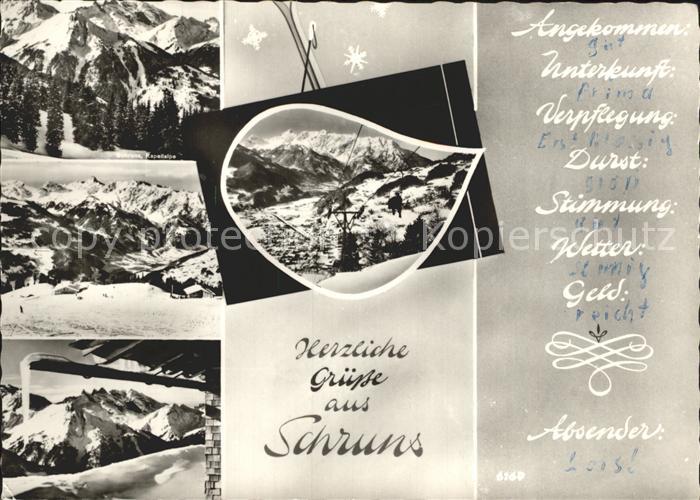 Schruns, Kapellalpe
Herzliche
Grüße
aus
Schruns
Angekommen:
gut
Unterkunft:
Prima
Verpflegung:
Erstklassig
Durst:
groß
Stimmung:
gut
Wetter:
Geld:
reicht
Absender:
6160
copyright protected - Kopierschutz